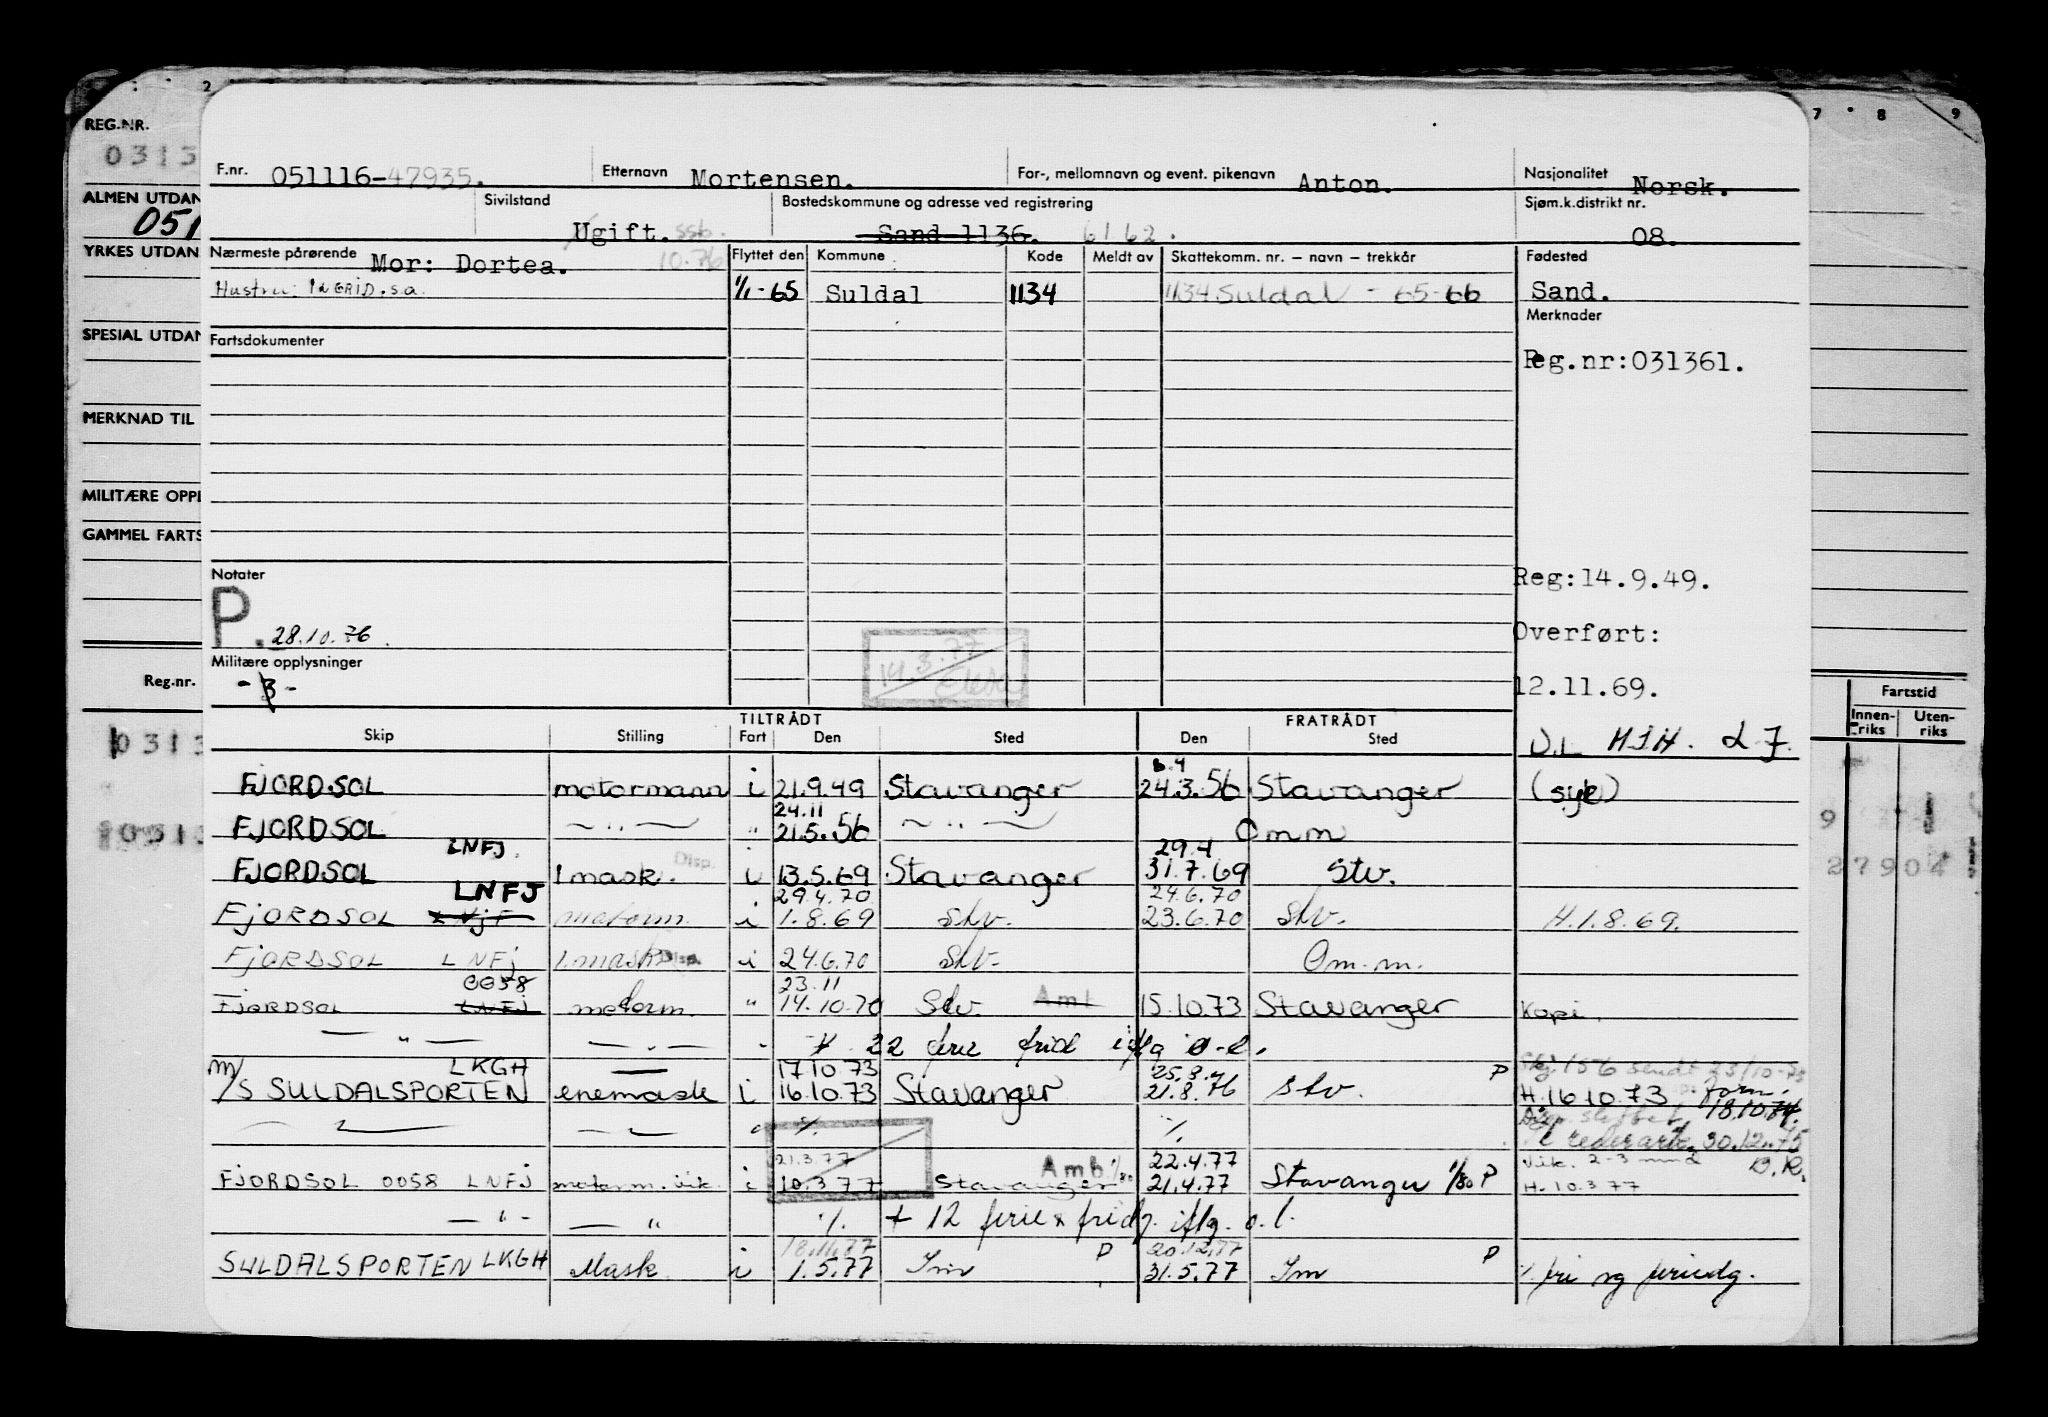 2 7 8 9
REG.NR.
0313
F.nr. 051116-47935. Etternavn Mortensen. For-, mellomnavn og event. pikenavn Anton. Nasjonalitet Norsk.
ALMEN UTDAN
051
Sivilstand Ugift. ssb. Bostedskommune og adresse ved registrering Sand 1136. 6162. Sjøm.k.distrikt nr. 08.
YRKES UTDAN
Nærmeste pårørende Mor: Dortea. 10.76 Flyttet den Kommune Kode Meldt av Skattekomm. nr. – navn – trekkår Fødested
Hustru: INGRID. s.a. 1/1-65 Suldal 1134 1134 Suldal - 65-66 Sand.
Merknader
SPESIAL UTDAN
Fartsdokumenter
Reg.nr:031361.
MERKNAD TIL
MILITÆRE OPPL
GAMMEL FARTS
Notater
P. 28.10.76
Reg:14.9.49.
Overført:
Militære opplysninger
14.3.77
12.11.69.
Reg.nr.
Fartstid
Innenriks Utenriks
TILTRÅDT FRATRÅDT
Skip Stilling Fart Den Sted Den Sted
0313
6.4
FJORDSOL motormann i 21.9.49 Stavanger 24.3.56 Stavanger (syk)
24.11
FJORDSOL — " — " 21.5.56 — " — Omm
LNFJ. Disp. 29.4
FJORDSOL 1 mask. i 13.5.69 Stavanger 31.7.69 Stv.
27904
LNFJ 29.4.70 24.6.70
FJORDSOL LNJF motorm. i 1.8.69 Stv. 23.6.70 Stv. H.1.8.69.
FJORDSOL LNFJ 1.mask Disp. i 24.6.70 Stv. Om.m.
0058 23.11
FJORDSOL LNFJ motorm. " 14.10.70 Stv. Aml 15.10.73 Stavanger Kopi.
— " — — " — " + 22 ferie frid iflg o.l.
LKGH 17.10.73 25.8. P
m/s SULDALSPORTEN enemask i 16.10.73 Stavanger 21.8.76 Stv. H.16.10.73
18.10.74.
— " — — " — " %. %. 30.12.75
21.3.77 Amb 1/80 22.4.77 Vik. 2-3 mnd
FJORDSOL 0058 LNFJ motorm. vik. i 10.3.77 Stavanger 21.4.77 Stavanger 1/80 P H. 10.3.77
— " — — " %. + 12 ferie & fridg. iflg. o.l.
18.11.77 P 20.12.77 P
SULDALSPORTEN LKGH Mask. i 1.5.77 Im 31.5.77 Im %. fri og feriedg.